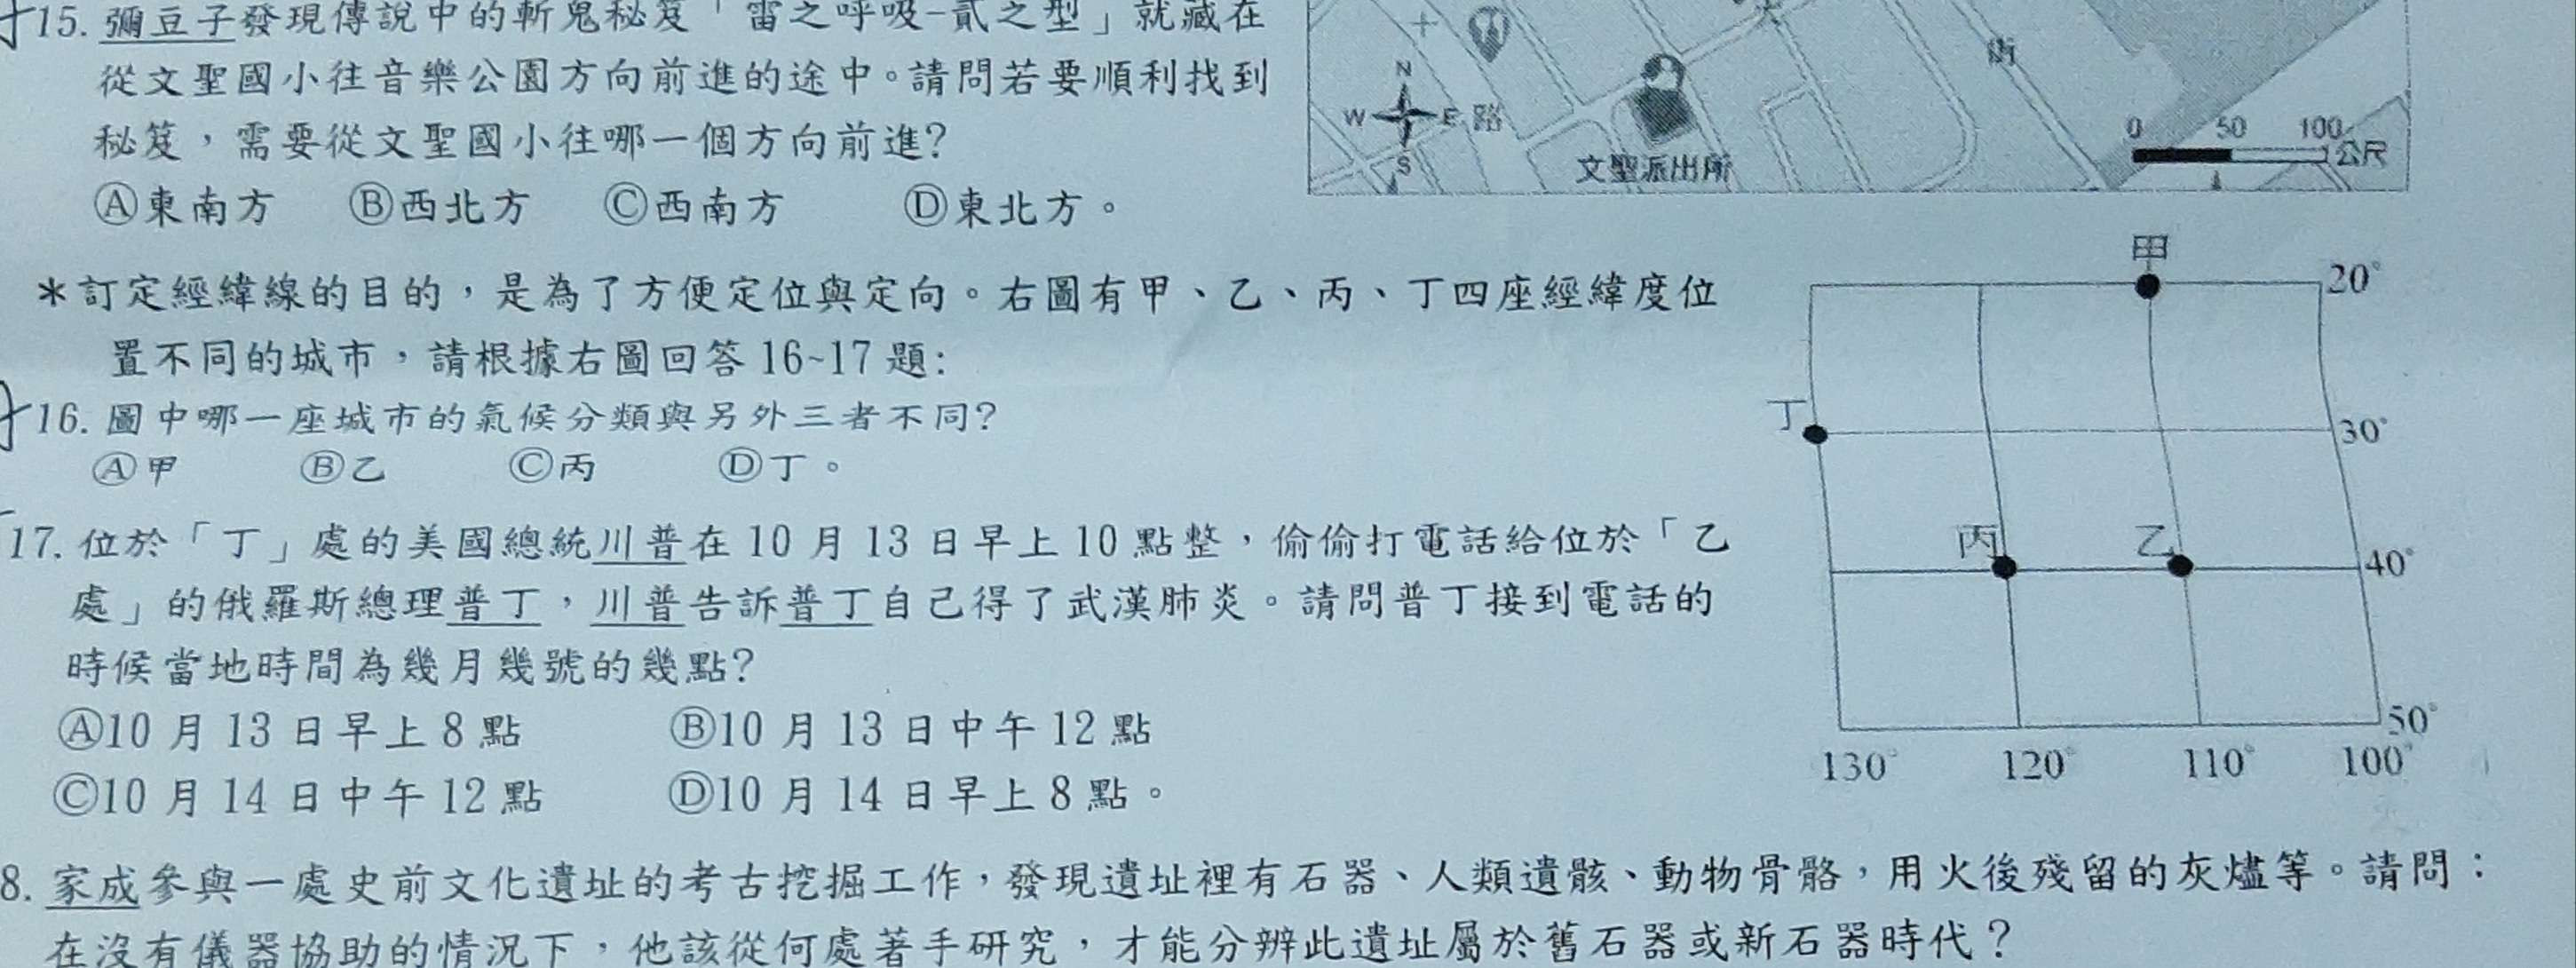 15. 彌豆子發現傳說中的斬鬼秘笈「雷之呼吸-貳之型」就藏在
從文聖國小往音樂公園方向前進的途中。請問若要順利找到
秘笈，需要從文聖國小往哪一個方向前進?
Ⓐ東南方 Ⓑ西北方 Ⓒ西南方 Ⓓ東北方。
街
N
W E 路
S
文聖派出所
0 50 100 公尺
＊訂定經緯線的目的，是為了方便定位與定向。右圖有甲、乙、丙、丁四座經緯度位
置不同的城市，請根據右圖回答 16~17 題:
16. 圖中哪一座城市的氣候分類與另外三者不同?
Ⓐ甲 Ⓑ乙 Ⓒ丙 Ⓓ丁。
17. 位於「丁」處的美國總統川普在 10 月 13 日早上 10 點整，偷偷打電話給位於「乙
處」的俄羅斯總理普丁，川普告訴普丁自己得了武漢肺炎。請問普丁接到電話的
時候當地時間為幾月幾號的幾點?
Ⓐ10 月 13 日早上 8 點 Ⓑ10 月 13 日中午 12 點
Ⓒ10 月 14 日中午 12 點 Ⓓ10 月 14 日早上 8 點。
甲
20°
丁
30°
丙 乙
40°
50°
130° 120° 110° 100°
8. 家成參與一處史前文化遺址的考古挖掘工作，發現遺址裡有石器、人類遺骸、動物骨骼，用火後殘留的灰燼等。請問：
在沒有儀器協助的情況下，他該從何處著手研究，才能分辨此遺址屬於舊石器或新石器時代？